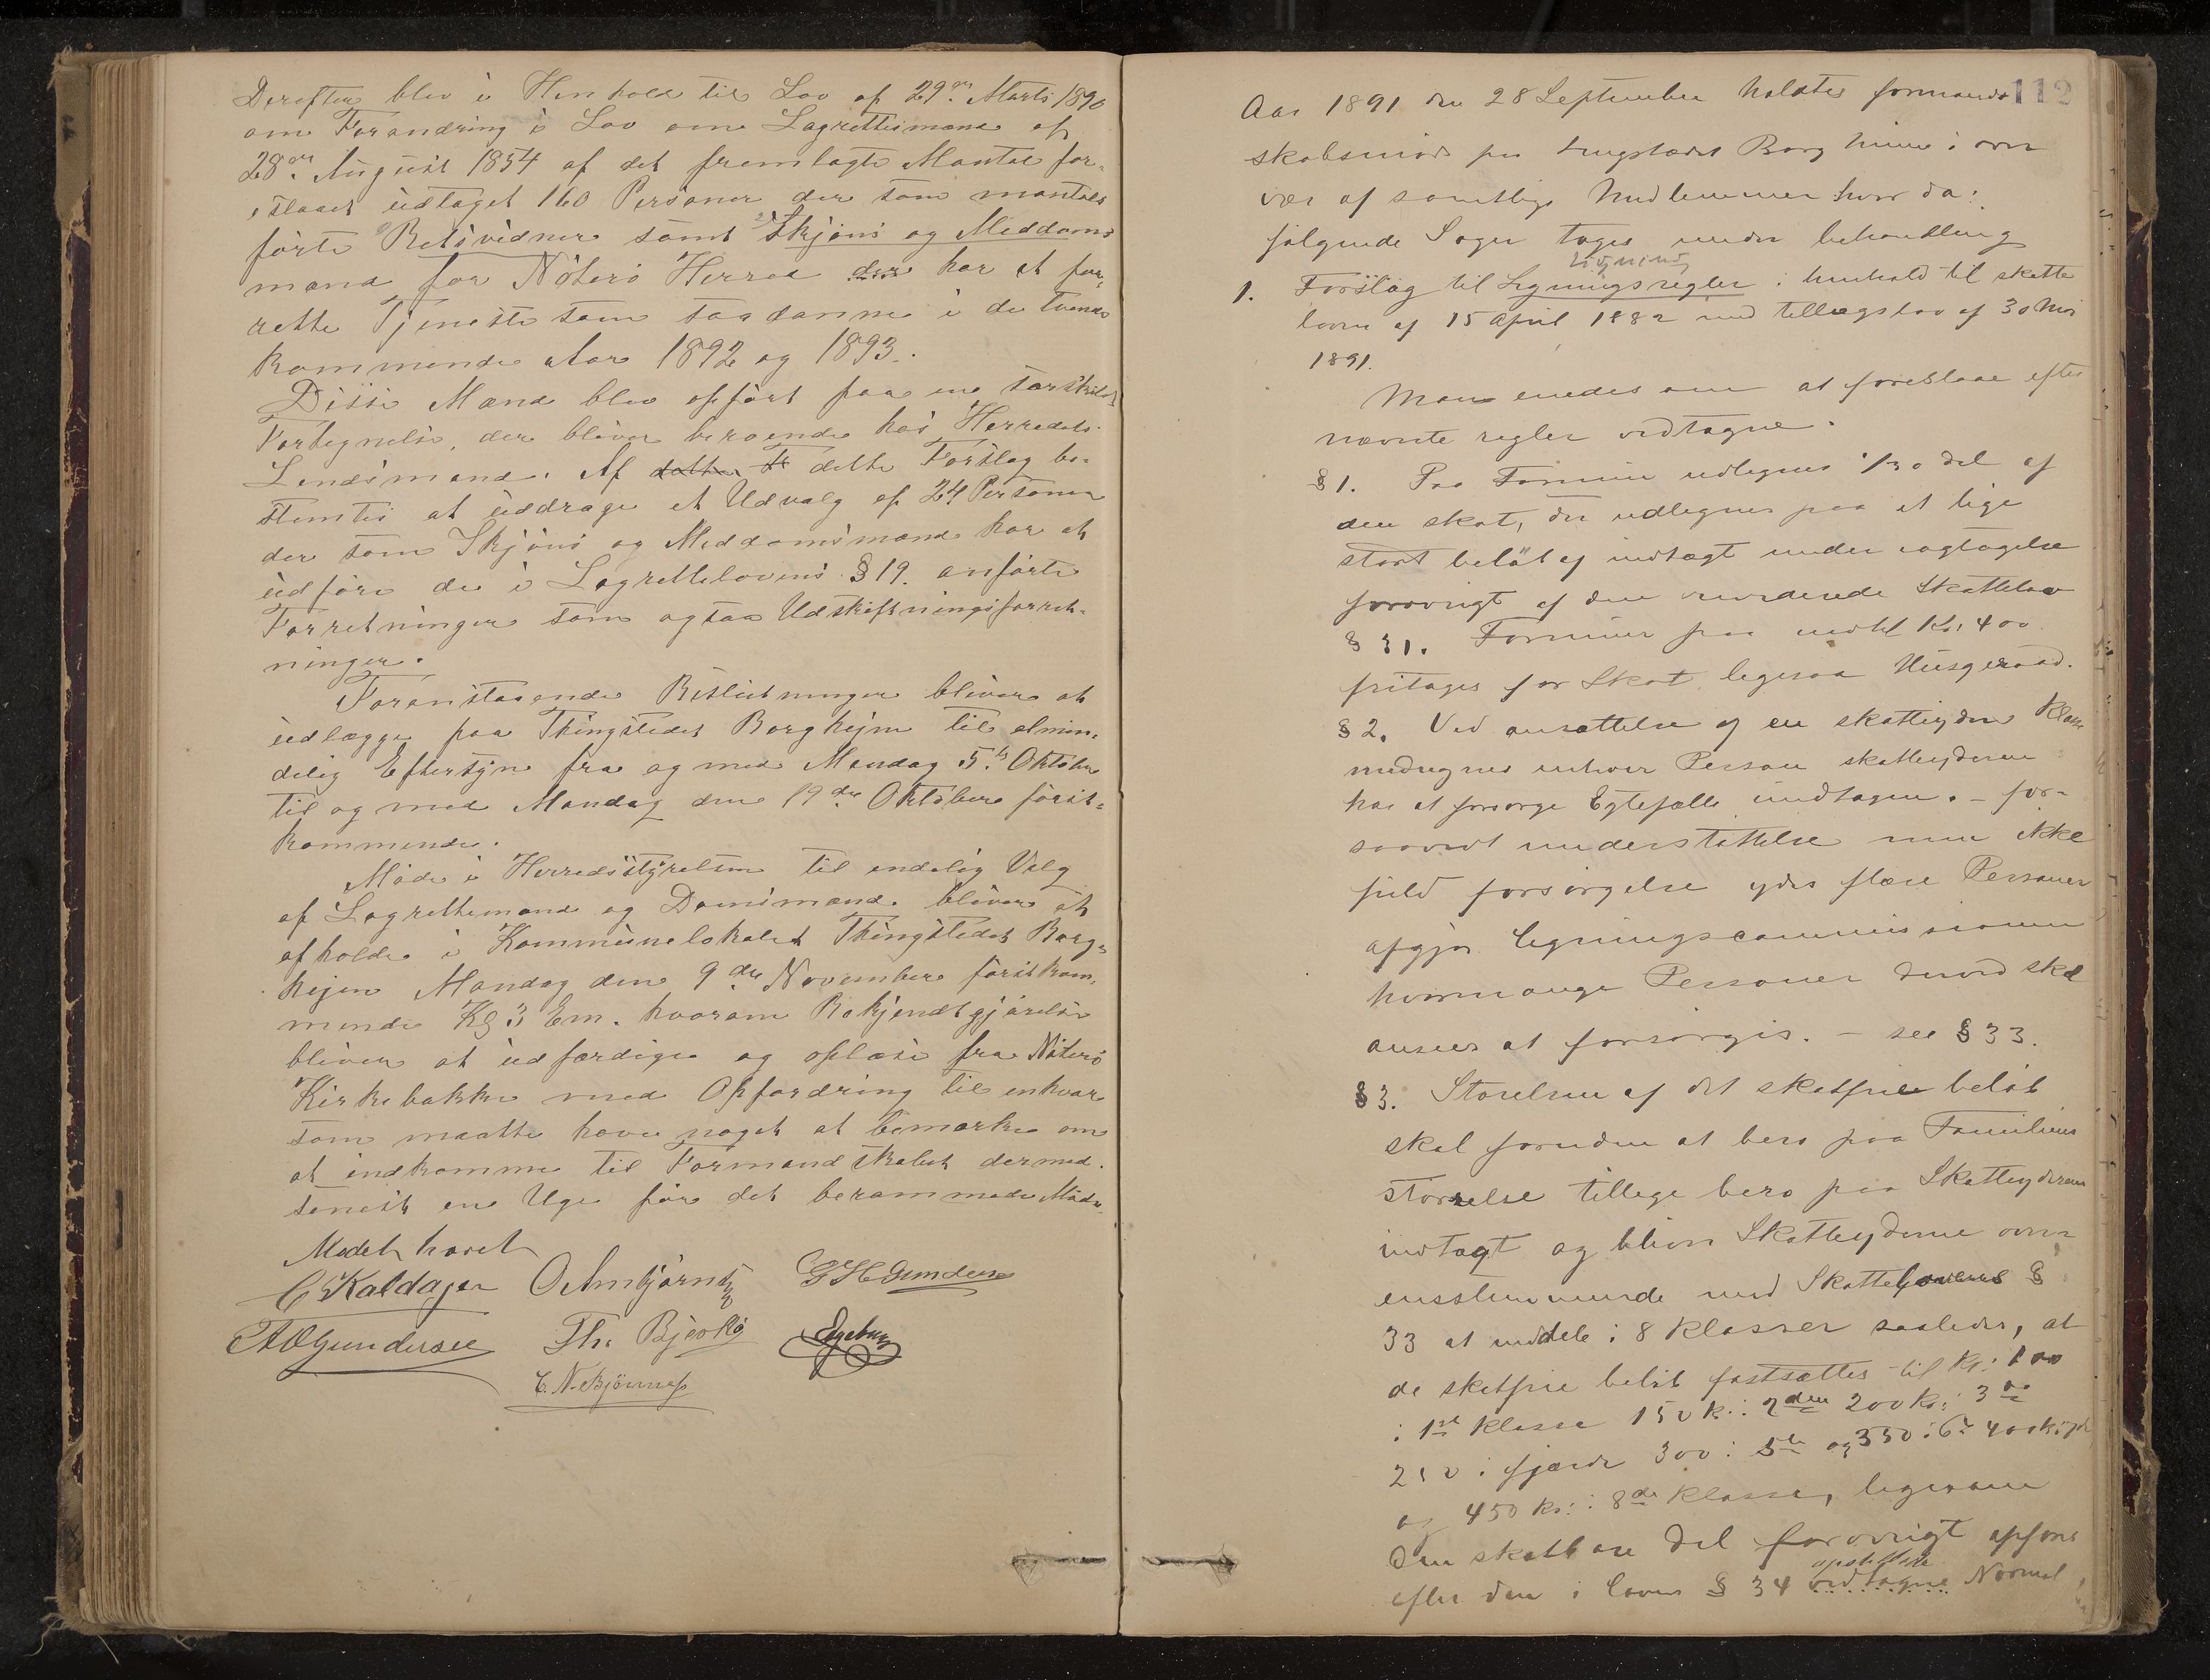 Derefter blev i Henhold til Lov af 29de Marts 1890
om Forandring i Lov om Lagrettesmænd af
28de August 1854 af det fremlagte Mantal fore-
slaaet udtaget 160 Personer der som mantals
førte Retsvidner samt Skjøns og Meddoms
mænd for Nøterø Herred der har at for-
rette Tjeneste som saadanne i de tvende
kommende Aar 1892 og 1893.
Disse Mænd blev opført paa en særskilt
Fortegnelse, der bliver beroende hos Herredets
Lendsmand. Af dette Forslag be-
stemtes at uddrage et Udvalg af 24 Personer
der som Skjøns og Meddomsmænd har at
udføre de i Lagrettelovens §19. anførte
Forretninger som ogsaa Udskiftningsforret-
ninger.
Foranstaaende Beslutninger bliver at
udlægge paa Thingstedet Borghejm til almin-
delig Eftersyn fra og med Mandag 5te Oktober
til og med Mandag den 19de Oktober først-
kommende.
Møde i Herredsstyrelsen til endelig Valg
af Lagrettemænd og Domsmænd bliver at
afholde i Kommunelokalet Thingstedet Borg-
hejm Mandag den 9de November førstkom-
mende Kl 3 Em. hvorom Bekjendtgjørelse
bliver at udfærdige og oplæse fra Nøterø
Kirkebakke med Opfordring til enhver
som maatte have noget at bemærke om
at indkomme til Formandskabet dermed
senest en Uge før det berammede Møde.
Mødet hævet
C Kaldager O Arnbjørnsen G H Gundersen
A O Gundersen Th. Bjerkø
C. N. Bjønnes
112
Aar 1891 den 28 September holdtes formand
skabsmøde paa tingstedet Borg heim i over
vær af samtlige Medlemmer hvor da:
følgende Sager toges under behandling
Ligning
1. Forslag til Ligningsregler i henhold til skatte
loven af 15 April 1882 med tillægslov af 30 Mai
1891.
Man enedes om at foreslaae efter
nævnte regler vedtagne.
§ 1. Paa Formue udlignes 1/30 del af
den skat, der udlignes paa et lige
stort beløb af indtægt under iagtagelse
forøvrigt af den reviderede Skattelov
§ 31. Formuer paa indtil Kr. 400
fritages for Skat, ligesaa Husgeraad.
§ 2. Ved ansættelse af en skatteyders Klasse
medregnes enhver Person skatteyderen
har at forsørge Egtefælle undtagen. – for-
saavidt understøttelse men ikke
fuld forsørgelse ydes flere Personer
afgjør ligningscommissionen
hvormange Personer derved skal
ansees at forsørges. – see § 33.
§ 3. Størelsen af det skatfrie beløb
skal foruden at bero paa Familiens
størrelse tillige bero paa Skatteyderens
indtægt og bliver Skatteyderne over
ensstemmende med Skattelovens §
33 at inddele i 8 Klasser saaledes, at
de skatfrie beløb fastsættes til Kr. 100
i 1ste Klasse 150 k. i 2den 200 kr. i 3de
250 i fjærde 300 i 5te og 350 i 6te 400 k i 7de
og 450 kr. i 8de Klasse, ligesom
den skatbare del forøvrigt opføres
opstillede
efter den i lovens § 34 vedtagne Normal